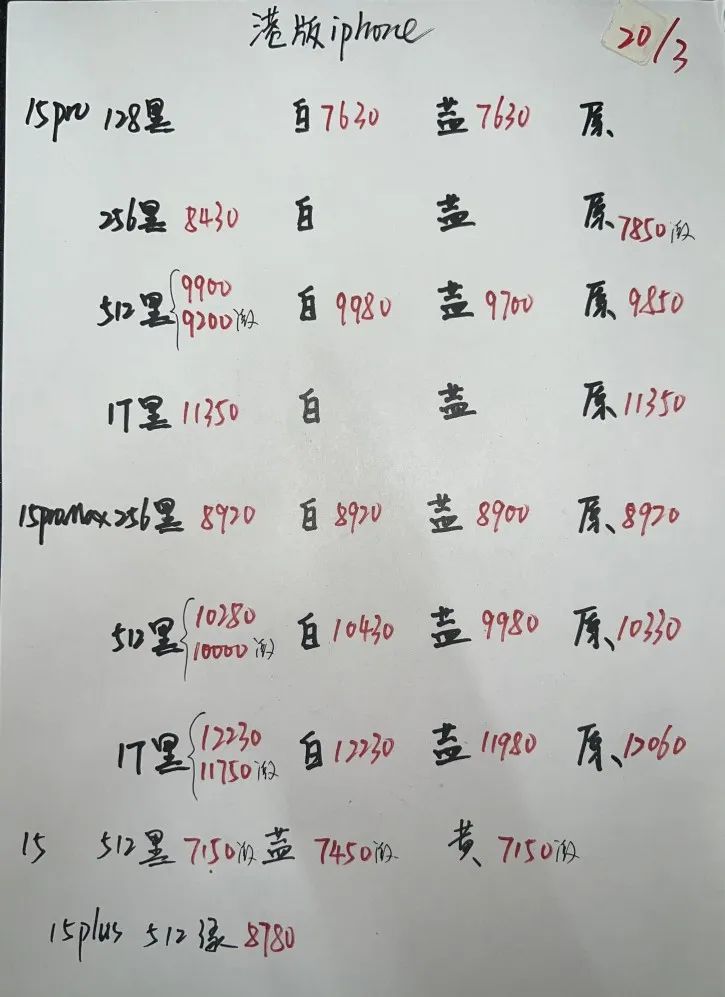 港版iphone
20/3
15pro 128黑 白7630 蓝7630 原
256黑 8430 白 蓝 原7850激
512黑 9900 9200激 白9980 蓝9700 原9850
1T黑 11350 白 蓝 原11350
15proMax 256黑 8920 白8920 蓝8900 原8920
512黑 10280 10000激 白10430 蓝9980 原10330
1T黑 12230 11750激 白12230 蓝11980 原12060
15 512黑 7150激 蓝 7450激 黄 7150激
15plus 512绿 8780